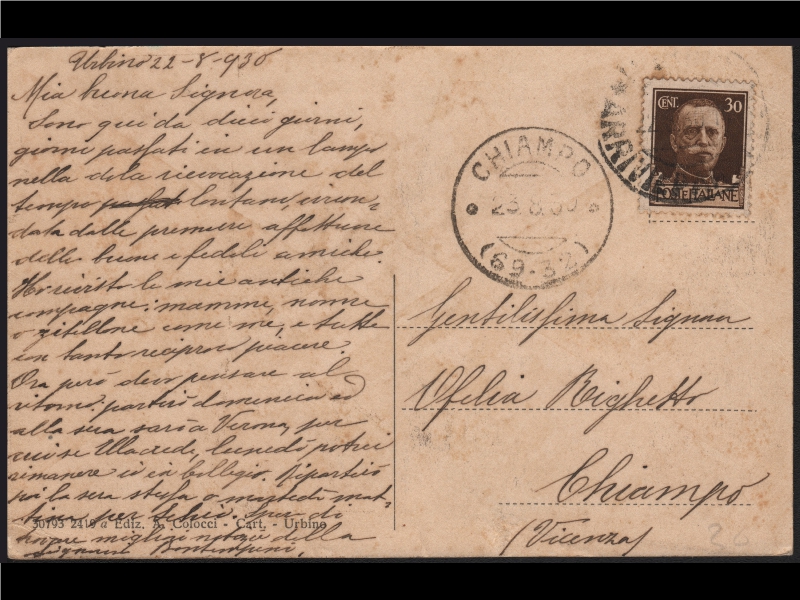 Urbino 22-8-930
Mia buona Signora,
Sono qui da dieci giorni,
giorni passati in un lampo
nella dolce rievocazione del
tempo lontano, circon-
data dalle premure affettuose
delle buone e fedeli amiche.
Ho rivisto le mie antiche
compagne: mamme, nonne
o zitellone come me, e tutte
con tanto reciproco piacere.
Ora però devo pensare al
ritorno. partirò domenica ed
alla sera sarò a Verona, per
cui se lunedì potrei
rimanere in collegio. Ripartirò
poi la sera stessa o martedì mat-
tina per Schio. Spero di
trovare migliori notizie della
Signora
30793 2419 a Ediz. A. Colocci - Cart. - Urbino
CENT. 30
POSTE ITALIANE
CHIAMPO
23.8.30
(69-32)
Gentilissima Signora
Ofelia Righetto
Chiampo
(Vicenza)